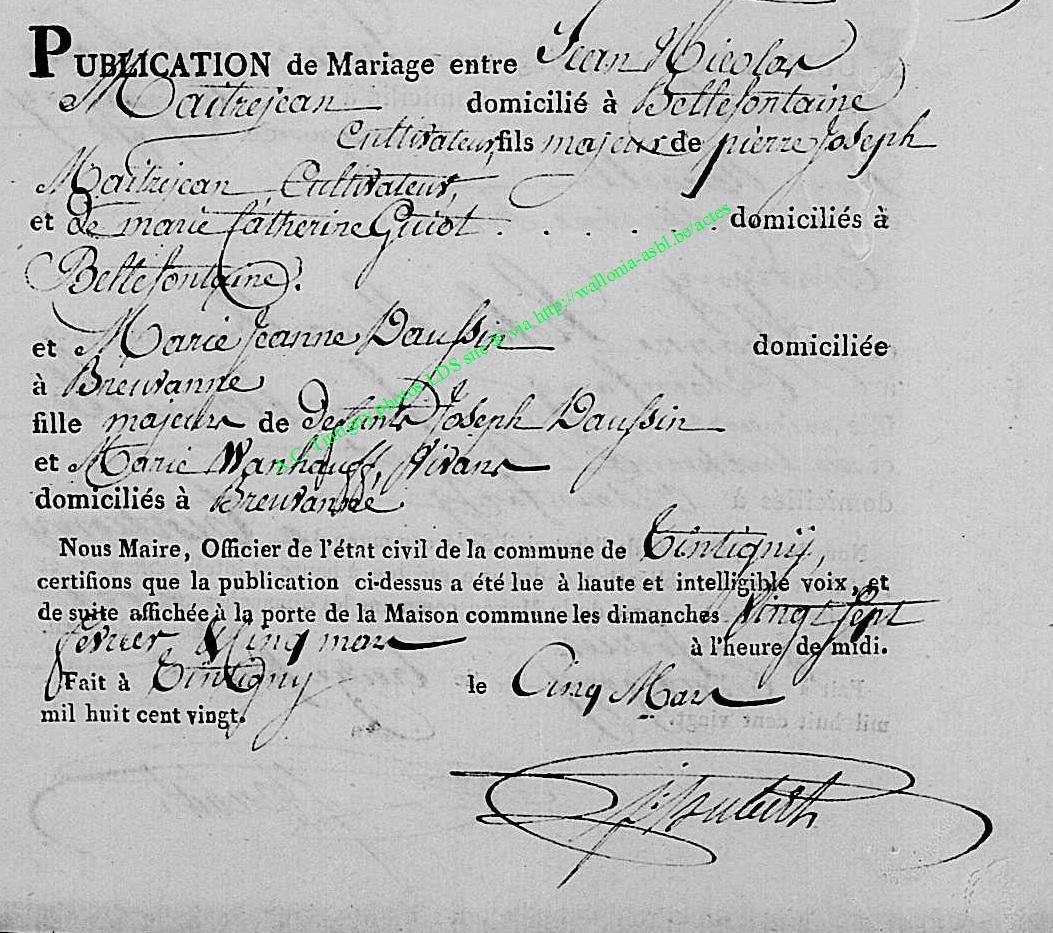 PUBLICATION de Mariage entre Jean Nicolas
Maitrejean domicilié à Bellefontaine
Cultivateur, fils majeur de pierre Joseph
Maitrejean, Cultivateur,
et de marie Catherine Guiot . . . . . . . domiciliés à
Bellefontaine.
et Marie Jeanne Daussin domiciliée
à Breuvanne
fille majeure de defunt Joseph Daussin
et Marie Wanhauff, vivans
domiciliés à Breuvanne
Nous Maire, Officier de l'état civil de la commune de Tintigny,
certifions que la publication ci-dessus a été lue à haute et intelligible voix, et
de suite affichée à la porte de la Maison commune les dimanches vingt sept
fevrier, & cinq mars à l'heure de midi.
Fait à Tintigny le Cinq Mars
mil huit cent vingt.
photos LDS site via http://wallonia-asbl.be/actes